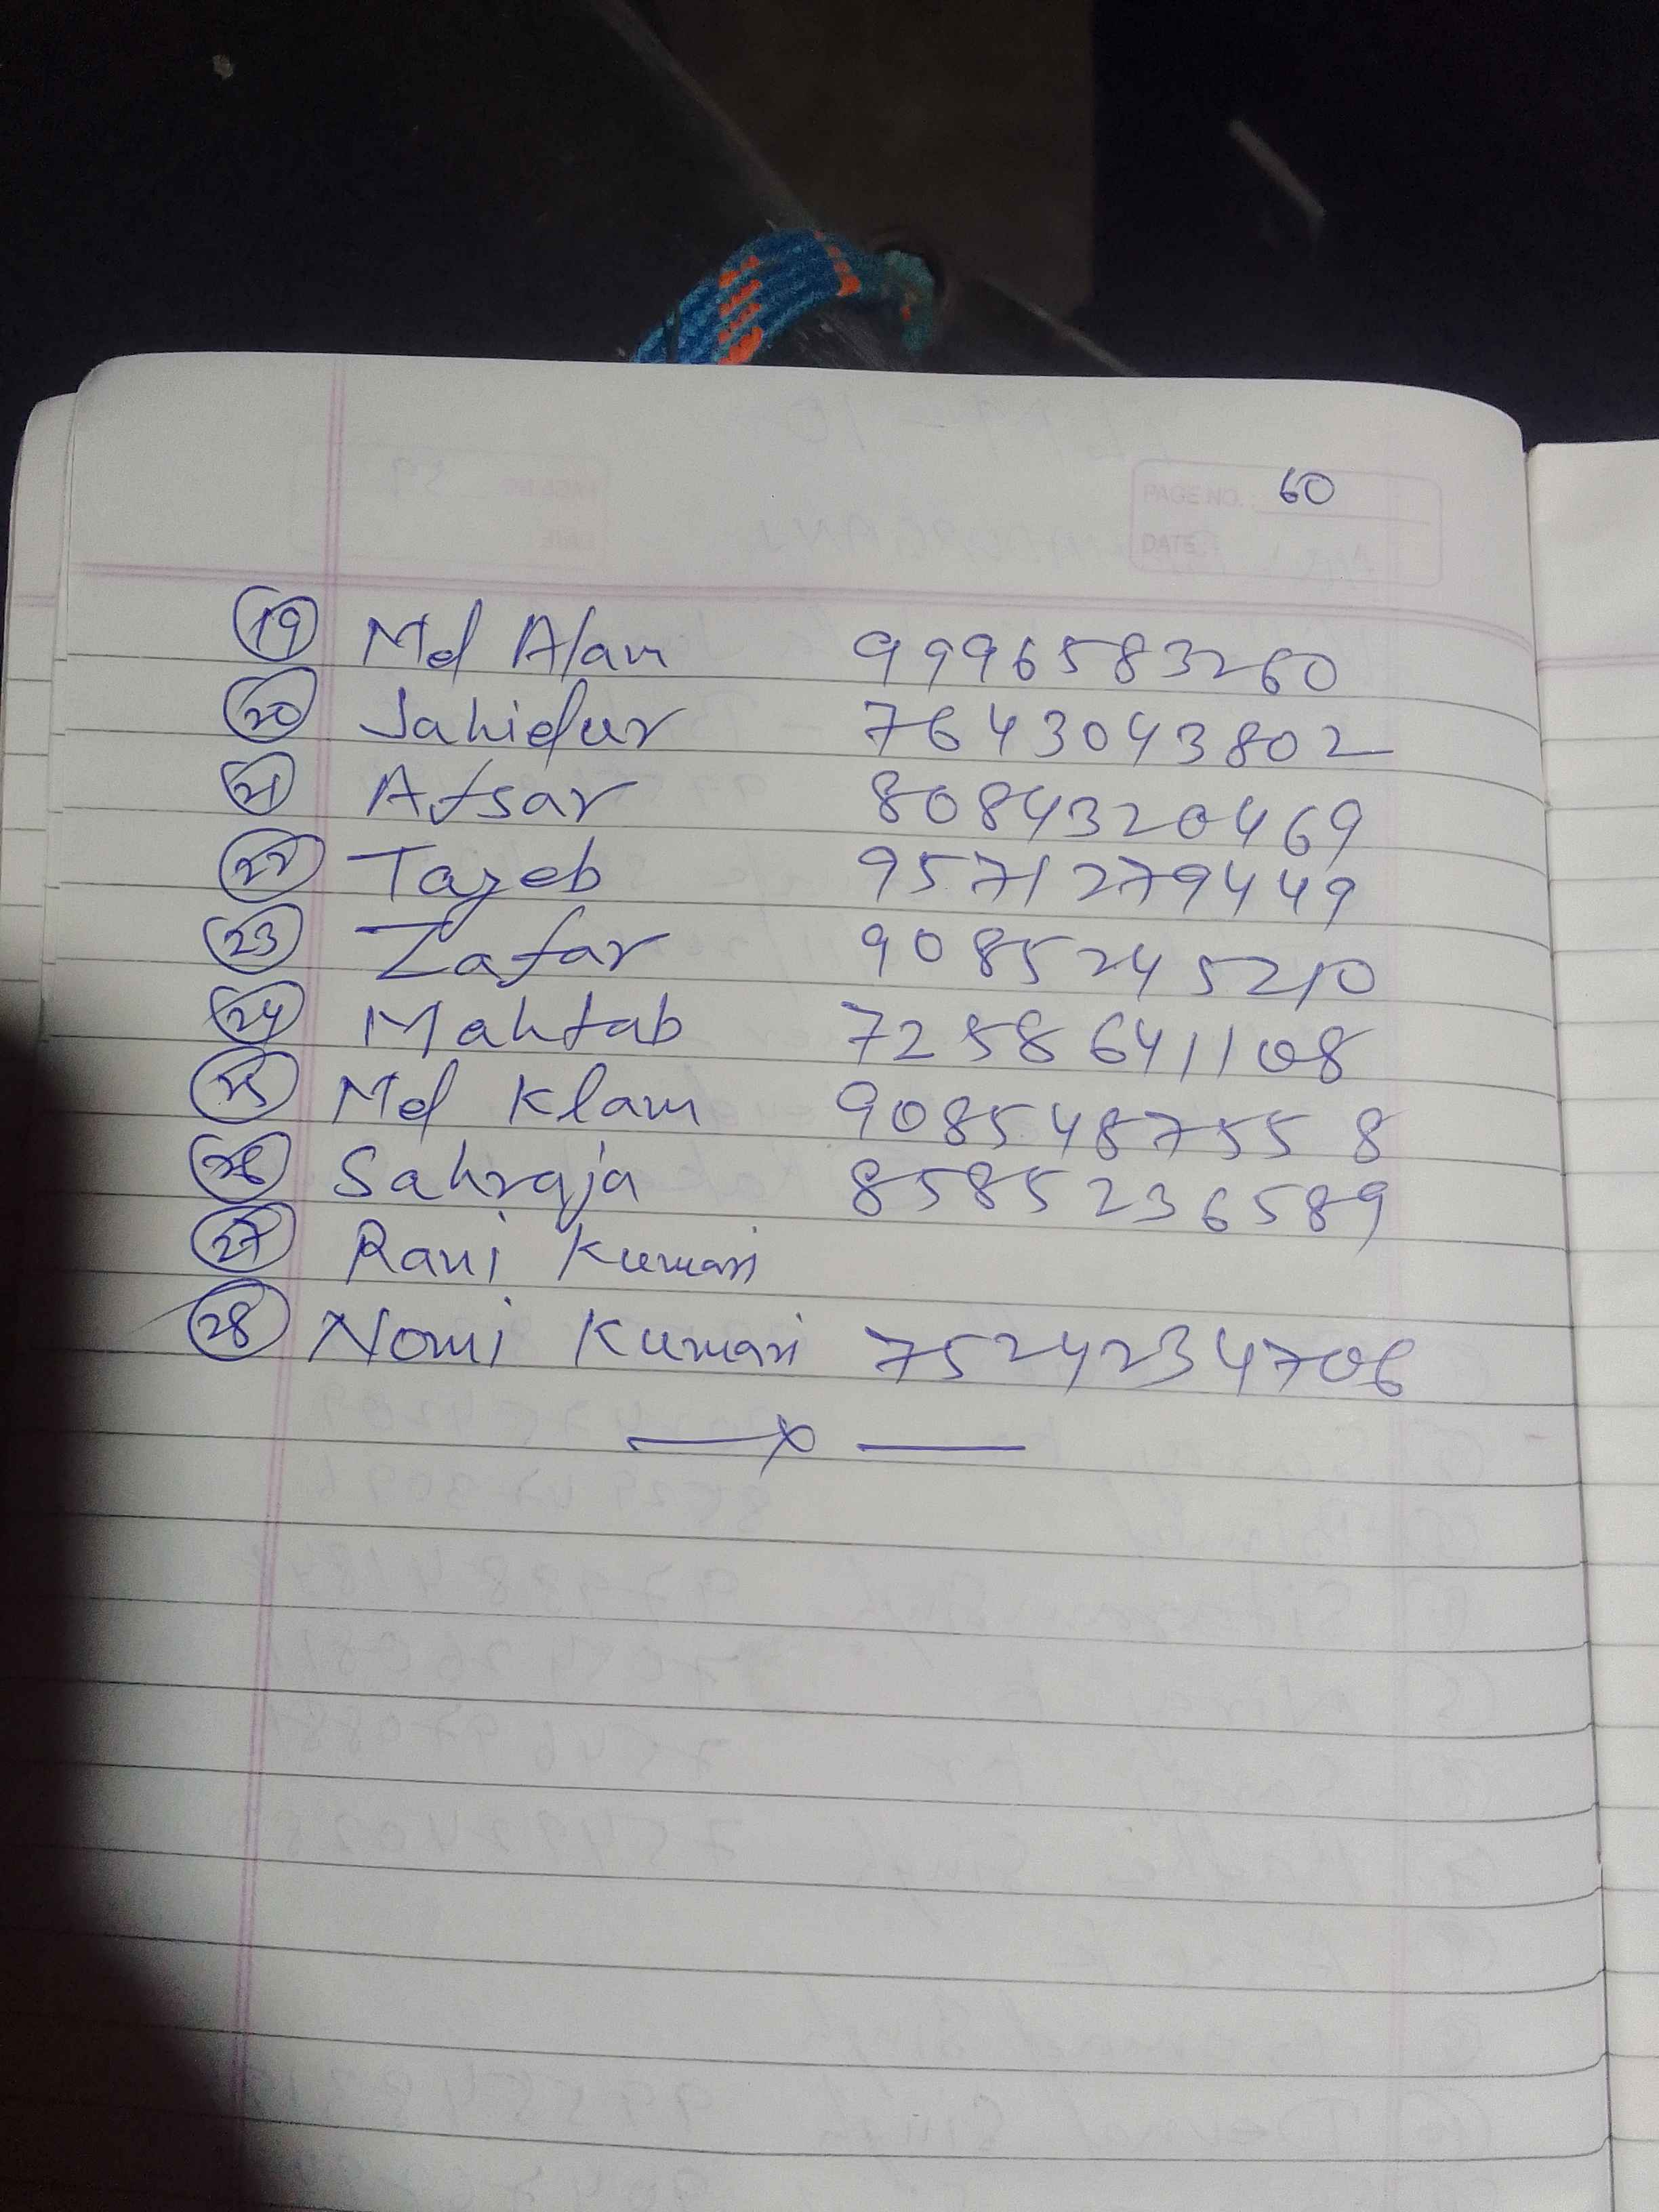 PAGE NO. 60
DATE
19 Md Alam 9996583260
20 Jahidur 7643043802
21 Afsar 8084320469
22 Tazeb 9571279449
23 Zafar 9085245210
24 Mahtab 7258641108
25 Md Klam 9085487558
26 Sahraja 8585236589
27 Rani Kumari
28 Nomi Kumari 7524234706